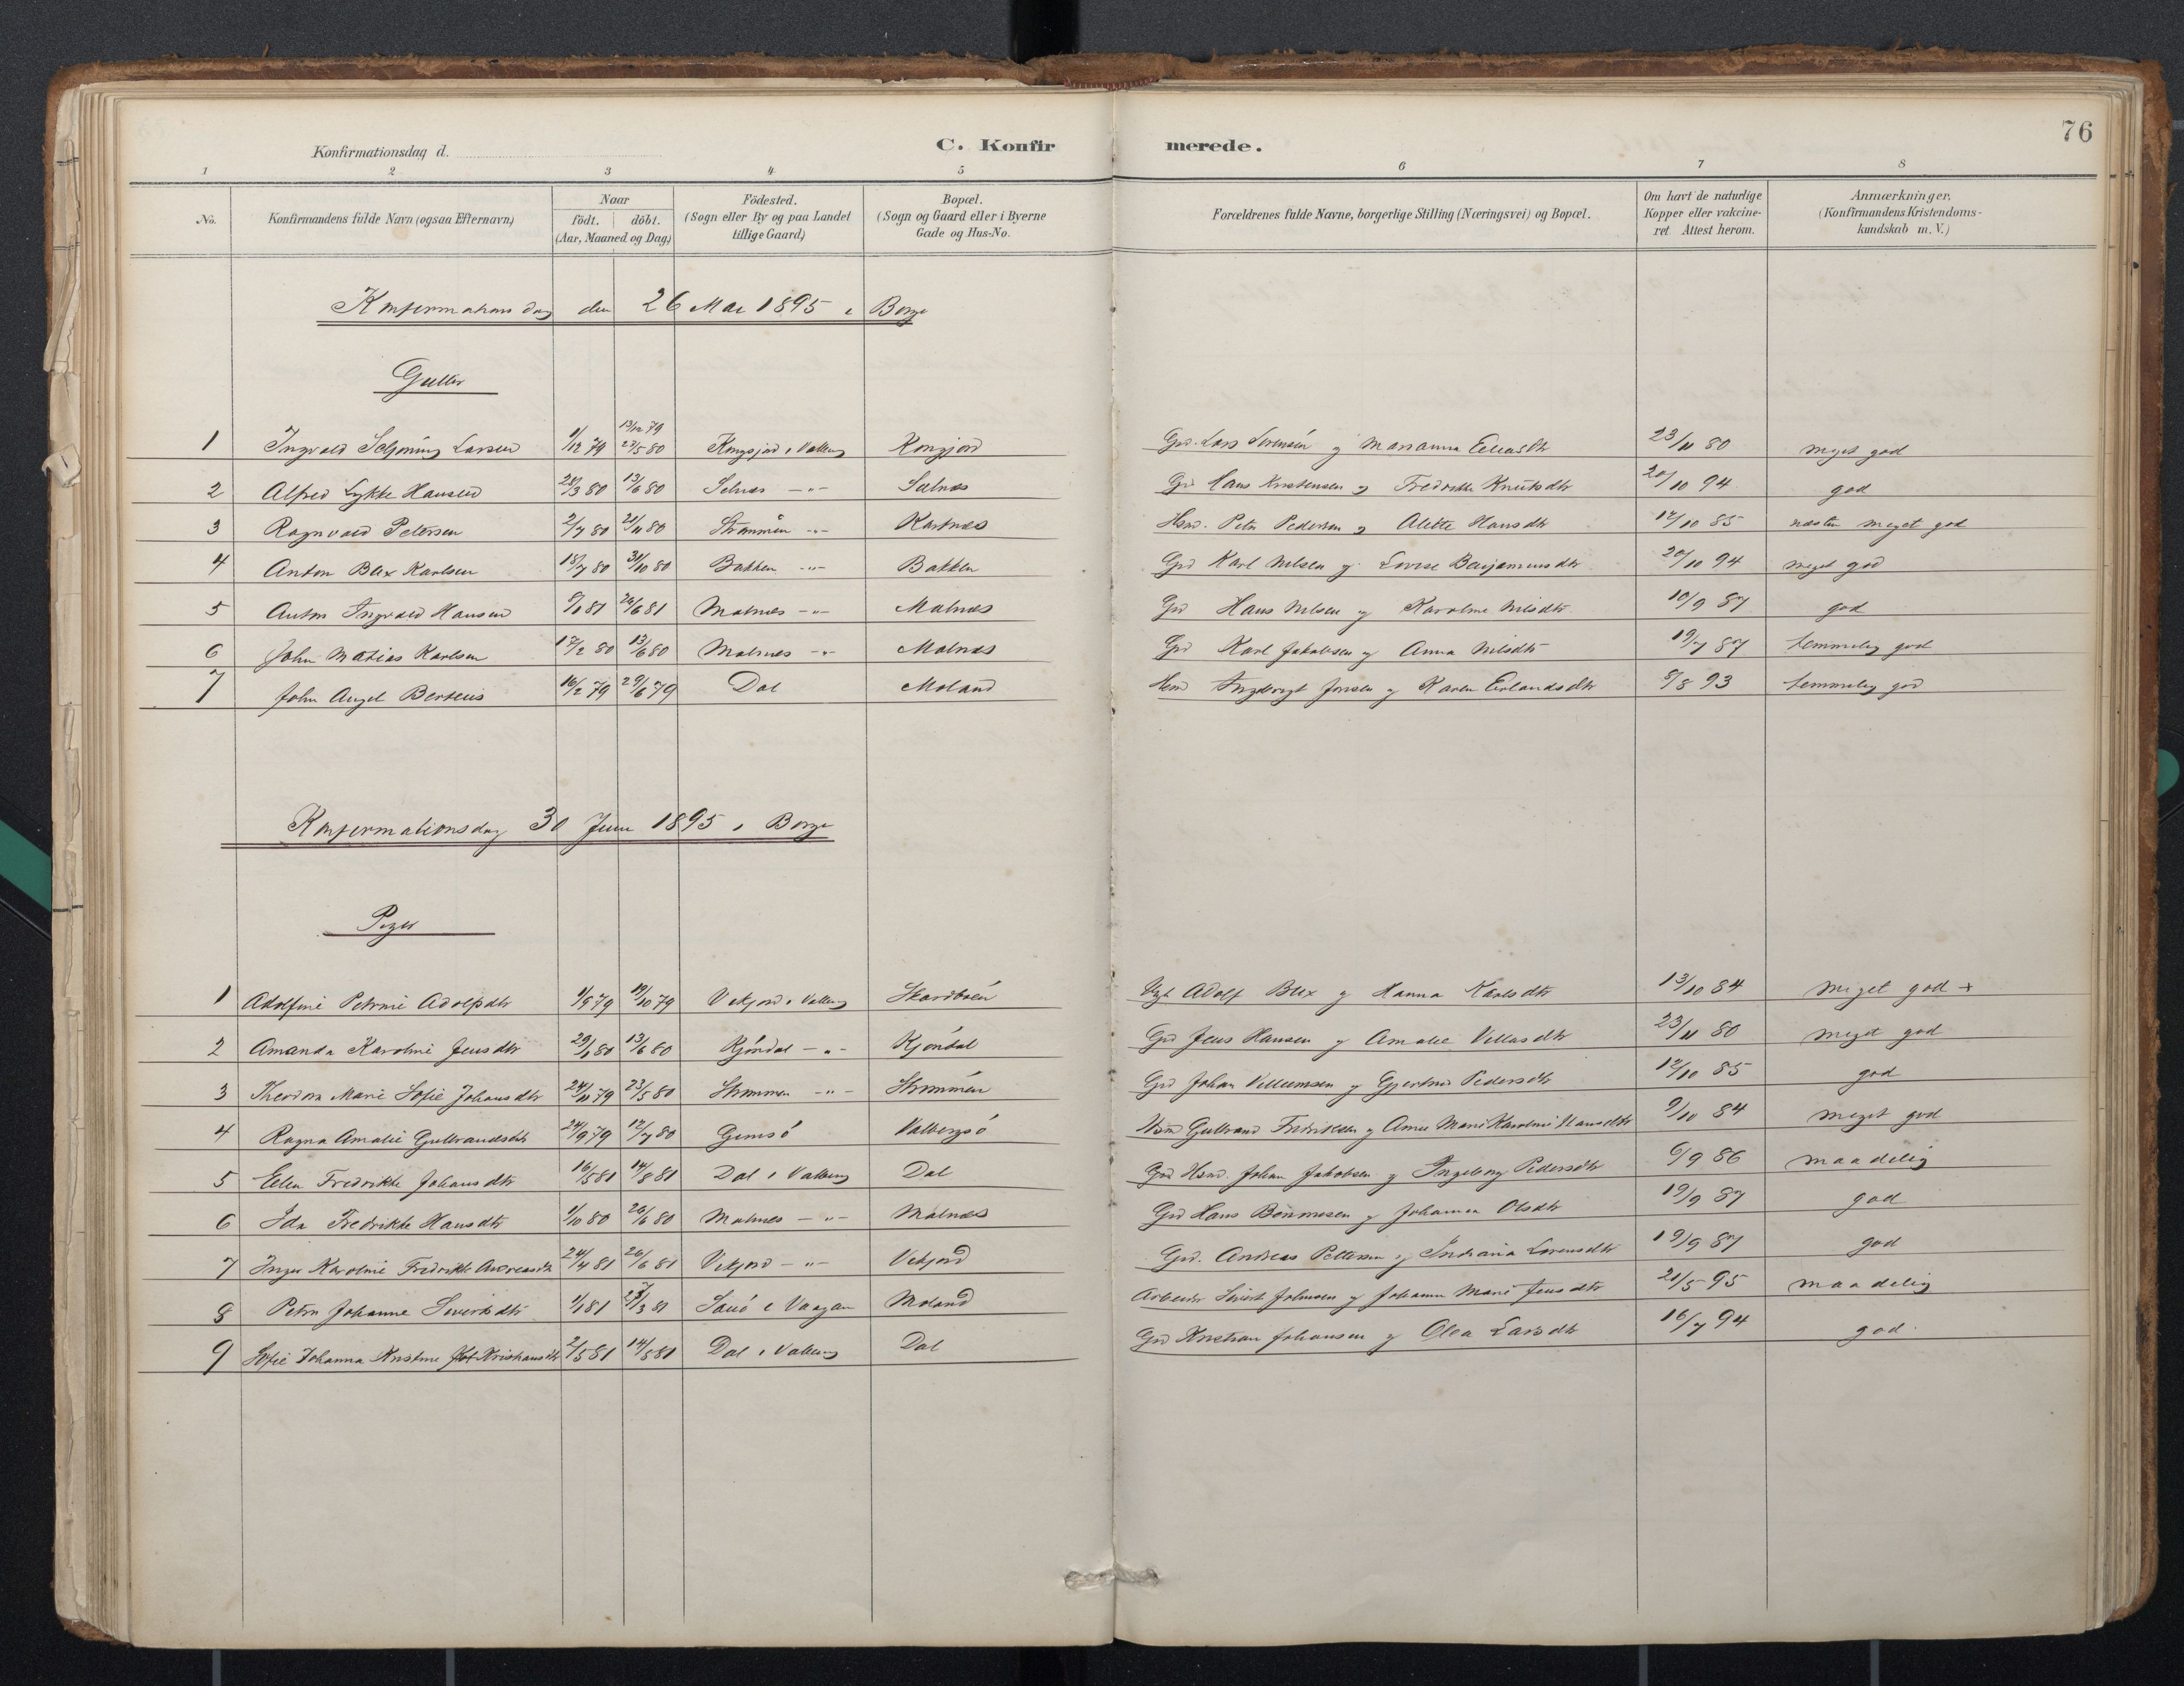 76
Konfirmationsdag d. C. Konfir merede.
1 2 3 4 5 6 7 8
No. Konfirmandens fulde Navn (ogsaa Efternavn) Naar födt. döbt. (Aar, Maaned og Dag) Födested. (Sogn eller By og paa Landet tillige Gaard) Bopæl. (Sogn og Gaard eller i Byerne Gade og Hus-No. Forældrenes fulde Navne, borgerlige Stilling (Næringsvei) og Bopæl. Om havt de naturlige Kopper eller vakcineret Attest herom. Anmærkninger, (Konfirmandens Kristendomskundskab m. V.)
Konfirmationsdag den 26 Mai 1895 i Borge
Gutter
1 Ingvald Schjøning Larsen 1/12 79 13/12 79 23/5 80 Kongsjord i Valberg Kongjord Grd. Lars Sørensen og Marianna Eliasdtr 23/11 80 meget god
2 Alfred Lykke Hansen 28/3 80 13/6 80 Selnæs -"- Selnæs Grd Hans Kristensen og Fredrikke Knutsdtr 20/10 94 god
3 Ragnvald Petersen 2/7 80 21/11 80 Strømmen -"- Kartnæs Hsmd. Peter Pedersen og Alette Hansdtr 12/10 85 næsten meget god
4 Anton Blix Karlsen 18/7 80 31/10 80 Bakken -"- Bakken Grd Karl Nilsen og Lovise Benjaminsdtr 20/10 94 meget god
5 Anton Ingvald Hansen 9/1 81 26/6 81 Malnes -"- Malnæs Grd Hans Nilsen og Karoline Nilsdtr 10/9 87 god
6 John Matias Karlsen 17/2 80 13/6 80 Malnes -"- Malnæs Grd Karl Jakobsen og Anna Nilsdtr 19/7 87 temmelig god
7 John Angel Berteus 16/2 79 29/6 79 Dal Moland Hsmd Ingebrigt Jonsen og Karen Erlandsdtr 8/8 93 temmelig god
Konfirmationsdag 30 Juni 1895 i Borge
Piger
1 Adolfine Petrine Adolfsdtr 1/9 79 19/10 79 Vikjord i Valberg Skardbøen Adolf Blix og Hanna Karlsdtr 13/10 84 meget god +
2 Amanda Karoline Jensdtr 29/1 80 13/6 80 Kjøndal -"- Kjøndal Grd Jens Hansen og Amalie Villasdtr 23/11 80 meget god
3 Theodora Marie Sofie Johansdtr 24/11 79 23/5 80 Strømmen -"- Strømmen Grd Johan Villumsen og Gjertrud Pedersdtr 12/10 85 god
4 Ragna Amalie Gulbrandsdtr 24/9 79 12/7 80 Gimsø Valbergsø Hsmd Gulbrand Fredriksen og Anne Marie Karoline Hansdtr 9/10 84 meget god
5 Ellen Fredrikke Johansdtr 16/5 81 14/8 81 Dal i Valberg Dal Grd Hsmd. Johan Jakobsen og Ingeborg Pedersdtr 6/9 86 maadelig
6 Ida Fredrikke Hansdtr 1/10 80 26/6 80 Malnes -"- Malnæs Grd Hans Rønnesen og Johanna Olsdtr 19/9 87 god
7 Inger Karoline Fredrikke Andreasdtr 24/4 81 26/6 81 Vikjord -"- Vikjord Grd. Andreas Pettersen og Indiana Lorensdtr 19/9 87 god
8 Petra Johanne Sivertsdtr 1/1 81 27/3 81 i Vaagan Moland Arbeider Sivert Johnsen og Johanna Marie Jensdtr 21/5 95 maadelig
9 Sofie Johanna Kristine Kristiansdtr 2/5 81 14/8 81 Dal i Valberg Dal Grd Kristian Johansen og Olea Larsdtr 16/7 94 god